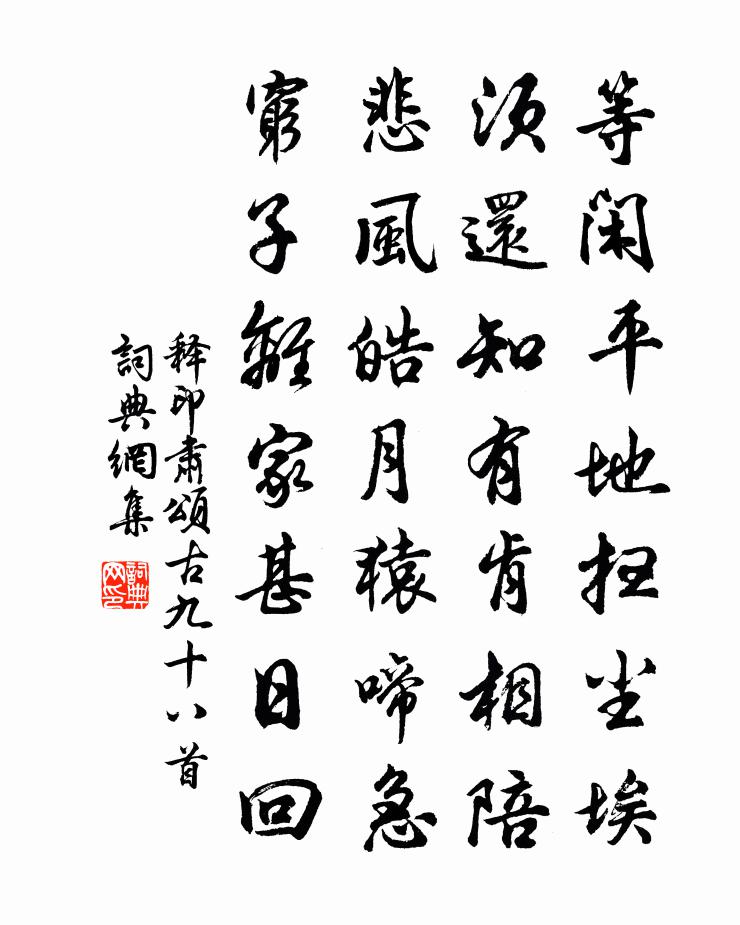 等閑平地扫尘埃
须還知有肯相陪
悲風皓月猿啼急
窮子離家甚日回
释印肃頌古九十八首
詞典網集
詞典
网印